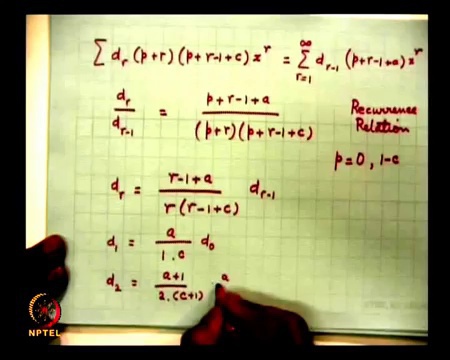 ∑ d_r (p+r) (p+r-1+c) x^r = ∑_{r=1}^{∞} d_{r-1} (p+r-1+a) x^r
d_r / d_{r-1} = (p+r-1+a) / ((p+r) (p+r-1+c))
Recurrence
Relation
p=0, 1-c
d_r = (r-1+a) / (r (r-1+c)) d_{r-1}
d_1 = a / (1.c) d_0
d_2 = (a+1) / (2.(c+1)) a
NPTEL